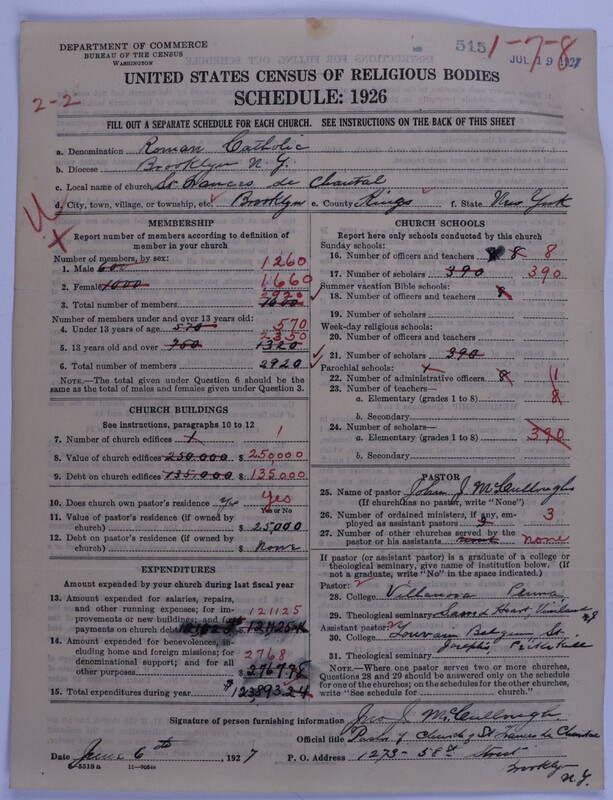 DEPARTMENT OF COMMERCE
BUREAU OF THE CENSUS
WASHINGTON
515 1-7-8
JUL 19 1927
UNITED STATES CENSUS OF RELIGIOUS BODIES
SCHEDULE: 1926
2-2
FILL OUT A SEPARATE SCHEDULE FOR EACH CHURCH. SEE INSTRUCTIONS ON THE BACK OF THIS SHEET
a. Denomination Roman Catholic
b. Diocese Brooklyn N.Y.
c. Local name of church St Frances de Chantal
d. City, town, village, or township, etc. Brooklyn e. County Kings f. State New York
MEMBERSHIP
Report number of members according to definition of
member in your church
Number of members, by sex:
1. Male 600 1260
2. Female 1000 1660
2920
3. Total number of members
Number of members under and over 13 years old:
4. Under 13 years of age 570 570
2350
5. 13 years old and over 750 1320
6. Total number of members 2920
NOTE.—The total given under Question 6 should be the
same as the total of males and females given under Question 3.
CHURCH BUILDINGS
See instructions, paragraphs 10 to 12
7. Number of church edifices 1 1
8. Value of church edifices 250.000 $ 250000
9. Debt on church edifices 135.000 $ 135000
10. Does church own pastor's residence Yes Yes
Yes or No
11. Value of pastor's residence (if owned by
church) $ 25,000
12. Debt on pastor's residence (if owned by
church) $ None
EXPENDITURES
Amount expended by your church during last fiscal year
13. Amount expended for salaries, repairs,
and other running expenses; for im-
provements or new buildings; and for 121125
payments on church debt
14. Amount expended for benevolences, in-
cluding home and foreign missions; for 2768
denominational support; and for all
other purposes $ 2767.78
15. Total expenditures during year $ 123,893.24
CHURCH SCHOOLS
Report here only schools conducted by this church
Sunday schools:
16. Number of officers and teachers 8 8
17. Number of scholars 390 390
Summer vacation Bible schools:
18. Number of officers and teachers 8
19. Number of scholars
Week-day religious schools:
20. Number of officers and teachers
21. Number of scholars 390
Parochial schools:
22. Number of administrative officers 8 1
23. Number of teachers—
a. Elementary (grades 1 to 8) 8
b. Secondary
24. Number of scholars—
a. Elementary (grades 1 to 8) 390
b. Secondary
PASTOR
25. Name of pastor John J McCullough
(If church has no pastor, write "None")
26. Number of ordained ministers, if any, em-
ployed as assistant pastors 3 3
27. Number of other churches served by the
pastor or his assistants none none
If pastor (or assistant pastor) is a graduate of a college or
theological seminary, give name of institution below. (If
not a graduate, write "No" in the space indicated.)
Pastor:
28. College Villanova Penna,
29. Theological seminary Sacred Heart, Vineland NJ
Assistant pastor:
30. College Louvain Belgium St.
Josephs,
31. Theological seminary
NOTE.—Where one pastor serves two or more churches,
Questions 28 and 29 should be answered only on the schedule
for one of the churches; on the schedules for the other churches,
write "See schedule for church."
Signature of person furnishing information Jno J McCullough
Official title Pastor of Church of St Frances de Chantal
Date June 6th, 1927 P. O. Address 1273-58th Street
Brooklyn
N.Y.
8-5518a 11-9054a